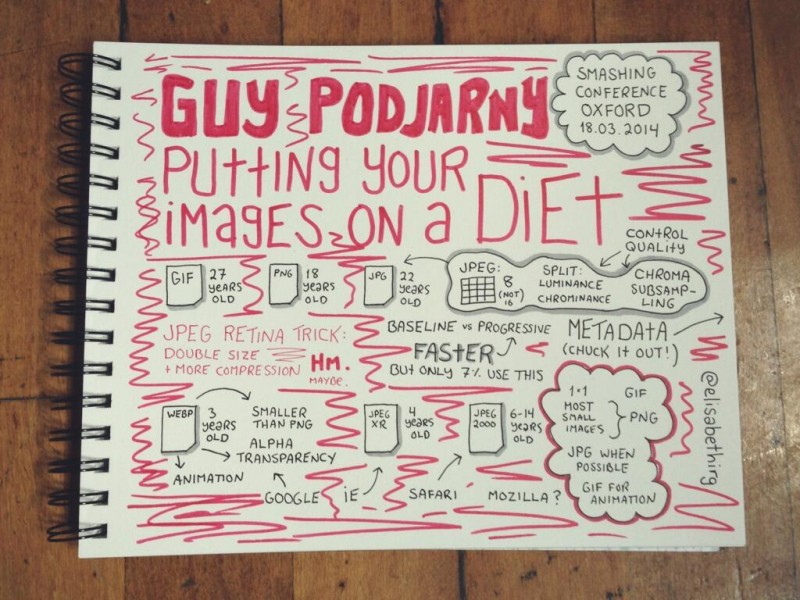 GUY PODJARNY
SMASHING
CONFERENCE
OXFORD
18.03.2014
PUttING YOUR
iMAGES ON a DiEt
CONtROL
QUALitY
GIF
27
YEARS
OLD
PNG
18
YEARS
OLD
JPG
22
YEARS
OLD
JPEG:
8
(NOT
16
SPLIT:
LUMINANCE
CHROMINANCE
CHROMA
SUBSAMP-
LING
JPEG RETINA TRICK:
DOUBLE SIZE
+ MORE COMPRESSION
HM.
MAYBE.
BASELINE vs PROGRESSIVE
FAStER
BUT ONLY 7% USE THIS
MEtADAtA
(CHUCK it OUT!)
WEBP
3
YEARS
OLD
SMALLER
THAN PNG
ALPHA
TRANSPARENCY
ANIMATION
GOOGLE
JPEG
XR
4
YEARS
OLD
iE
JPEG
2000
6-14
YEARS
OLD
SAFARI
MOZILLA?
1×1
MOST
SMALL
IMAGES
GIF
PNG
JPG WHEN
POSSIBLE
GIF FOR
ANIMATION
@elisabethirg